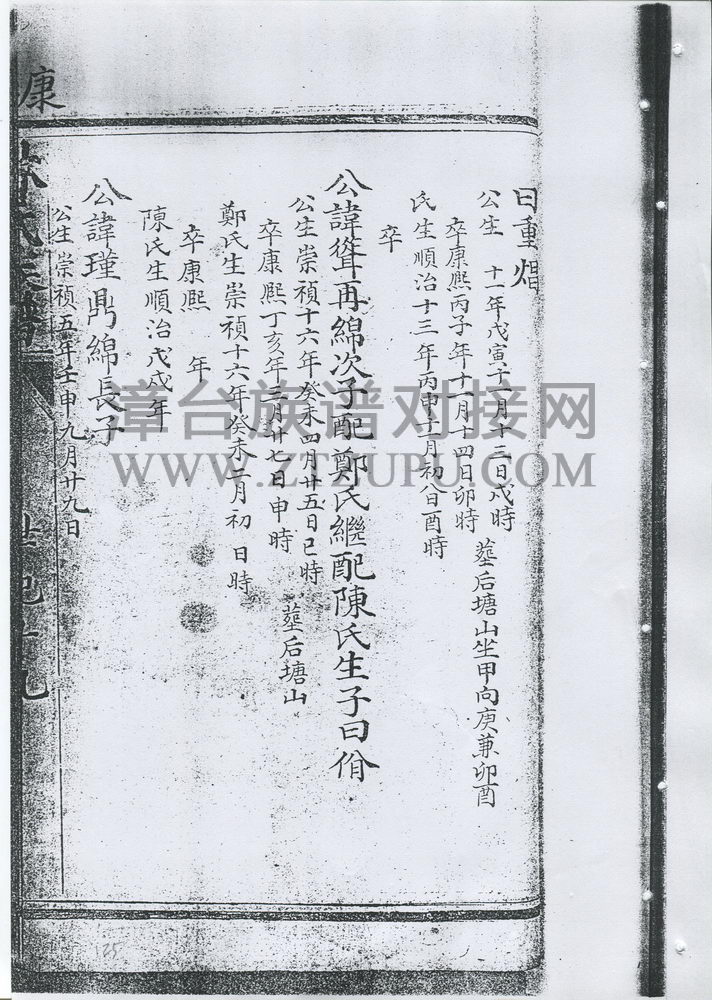 曰重熠
公生 十一年戊寅十月十三日戌時
卒康熙丙子年十一月十四日卯時 塟后塘山坐甲向庚兼卯酉
氏生順治十三年丙申十一月初八日酉時
卒
公諱聳再綿次子配鄭氏繼配陳氏生子曰佾
公生崇禎十六年癸未四月廿五日巳時
卒康熙丁亥年三月廿七日申時 塟后塘山
鄭氏生崇禎十六年癸未二月初 日時
卒康熙 年
陳氏生順治戊戌年
公諱瑾鼎綿長子
公生崇禎五年壬申九月廿九日
康
氏族譜
世紀
九
漳台族谱对接网
WWW.ZTZUPU.COM
125